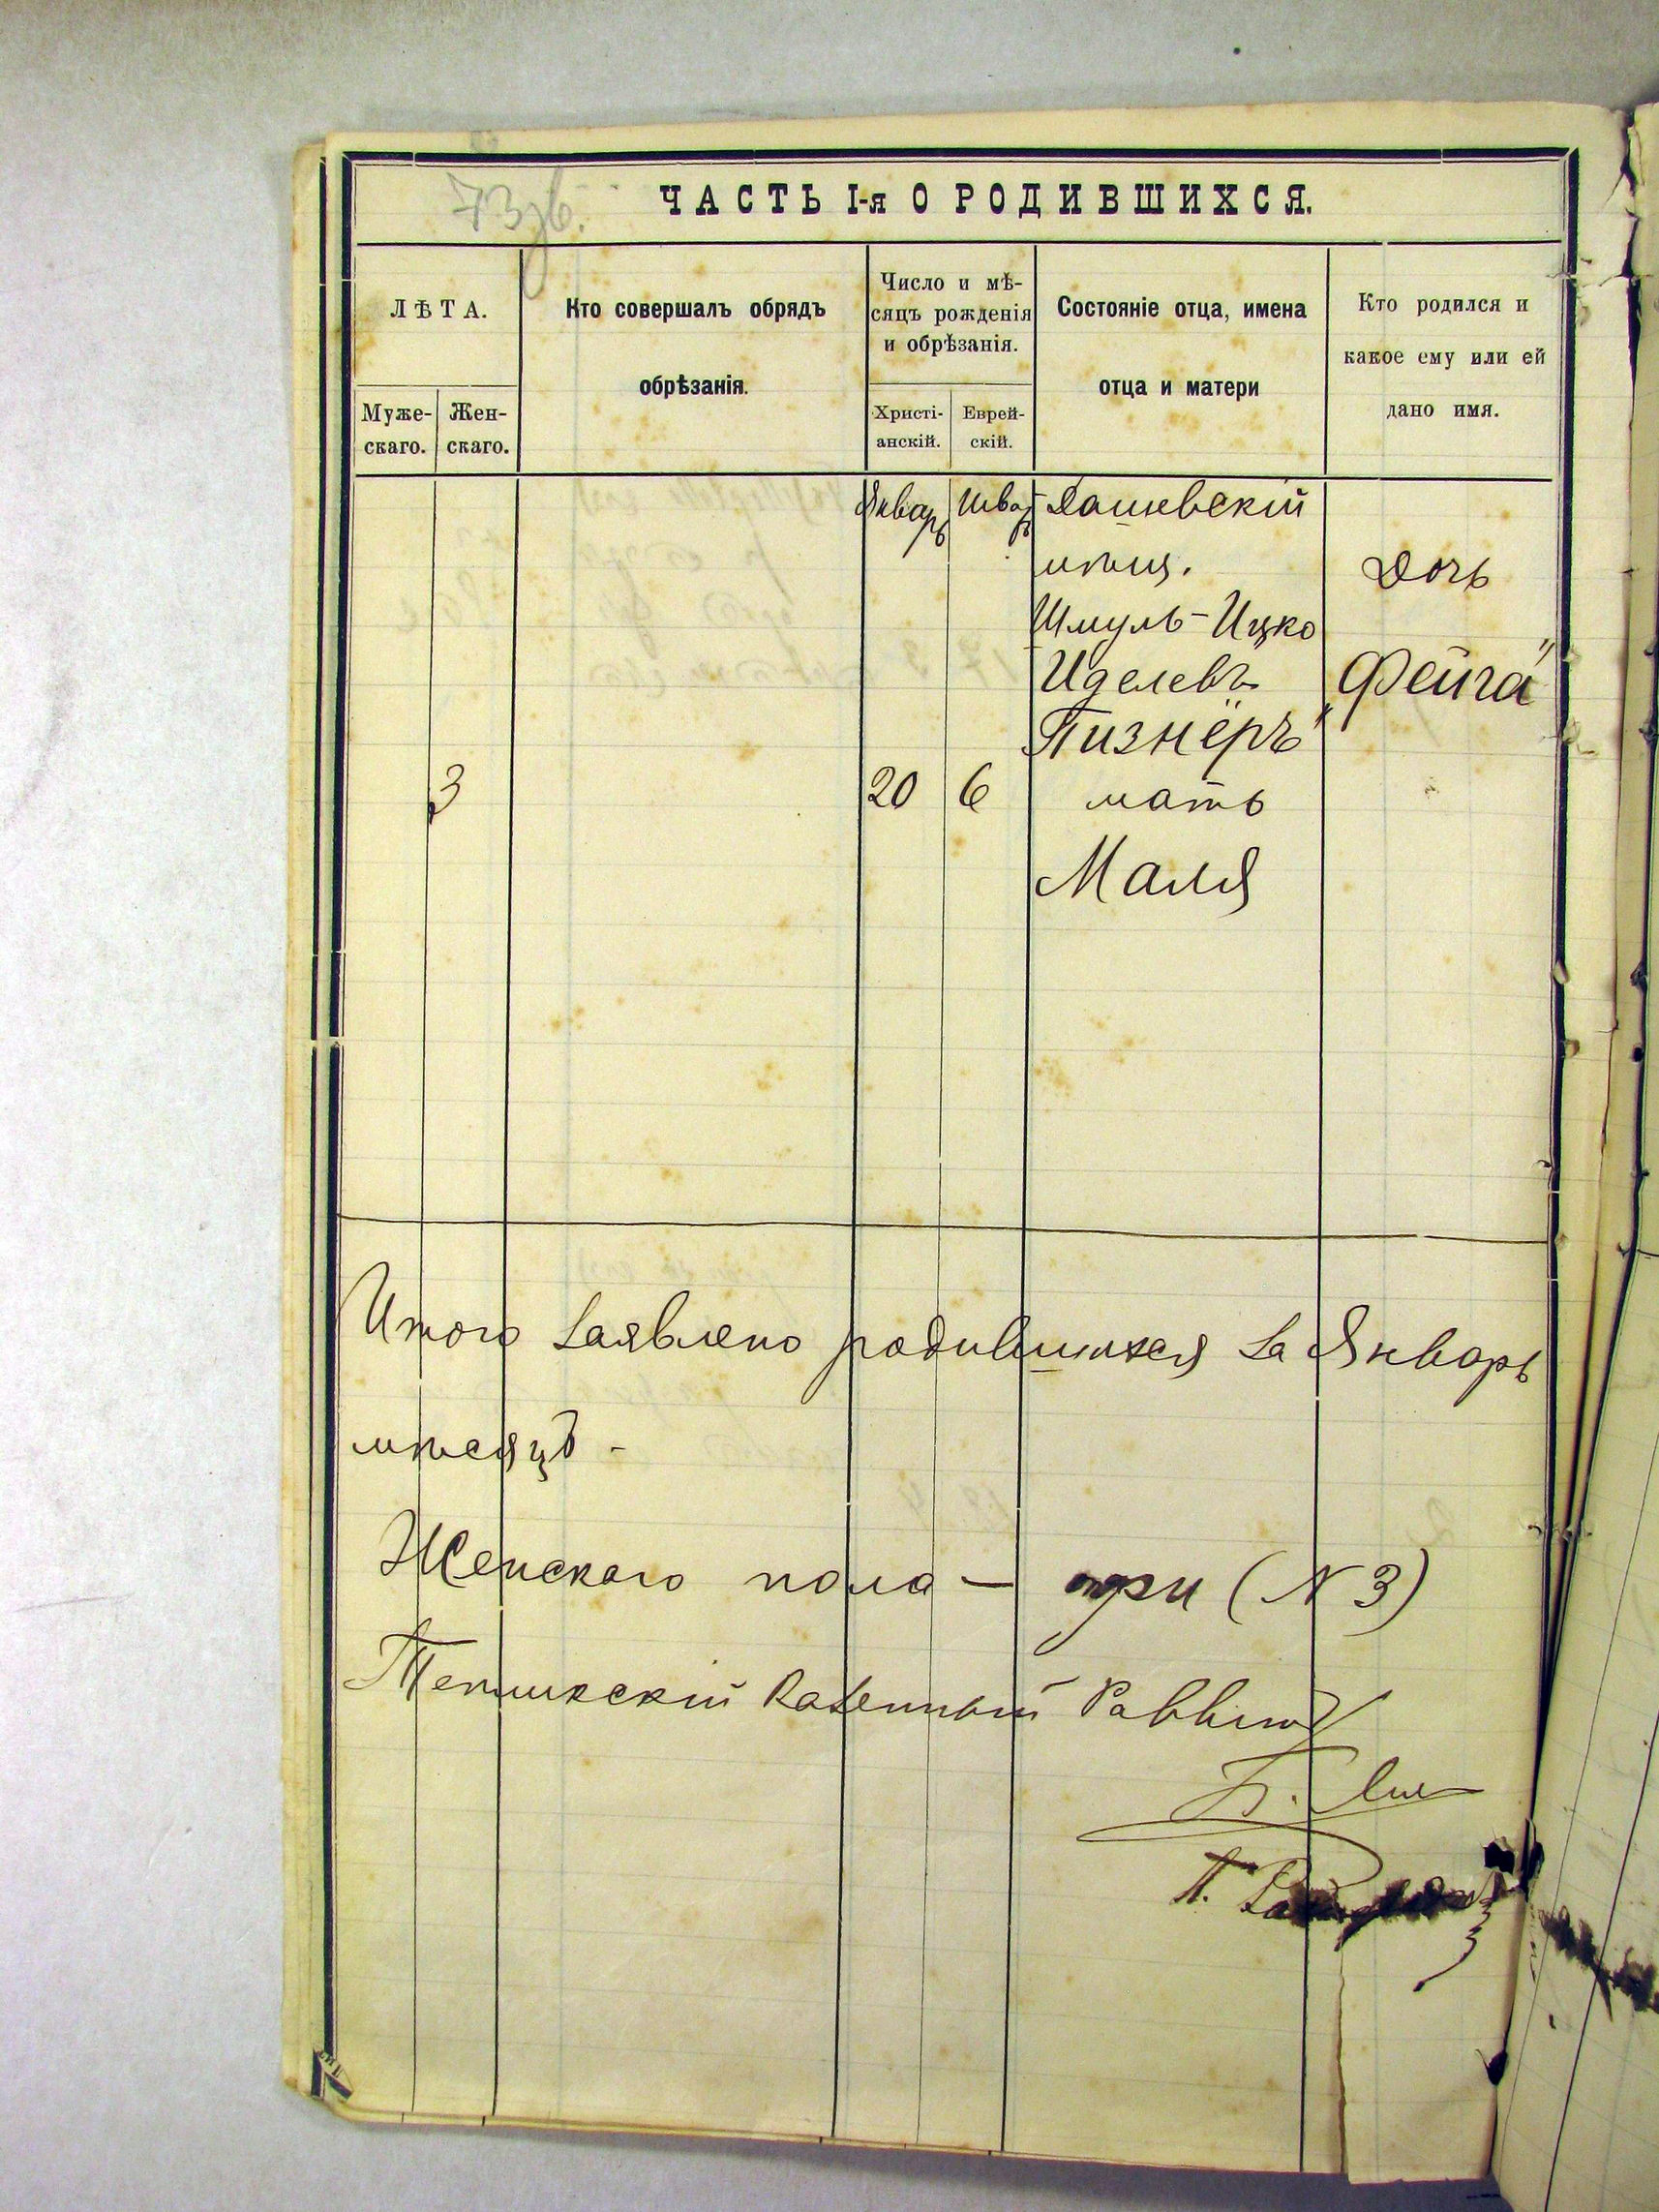 73зв.
ЧАСТЬ I-я О РОДИВШИХСЯ.
ЛѢТА.
Муже-
скаго.
Жен-
скаго.
Кто совершалъ обрядъ
обрѣзанія.
Число и мѣ-
сяцъ рожденія
и обрѣзанія.
Христі-
анскій.
Еврей-
скій.
Состояніе отца, имена
отца и матери
Кто родился и
какое ему или ей
дано имя.
Январь Шват
Дашевскій
мѣщ.
Дочь
Шмуль-Ицко
Иделевъ
"Фейга"
Пизнёръ"
3 20 6 мать
Маля
Итого заявлено родившихся за Январь
мѣсяцъ -
Женскаго пола — три (N 3)
Тепликскій Казенный Раввинъ
Б.
П.